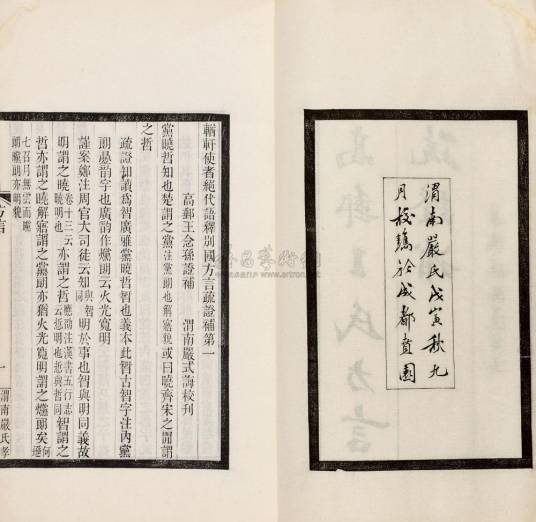 渭南嚴氏戊寅秋九
月校鐫於成都賁園
輶軒使者絕代語釋別國方言疏證補第一
高郵王念孫證補　渭南嚴式誨校刊
黨曉哲知也楚謂之黨注黨朗也解寤貌或曰曉齊宋之間謂
之哲
疏證知讀為智廣雅黨曉哲智也義本此智古智字注內黨
朗疊韵字也廣韵爣朗火光寬明也
謹案鄭注周官大司徒云知與智同明於事也智與明同義故
明謂之曉卷十三云曉明也亦謂之哲應劭注漢書五行志云悊明也悊與哲同智謂之
哲亦謂之曉解寤謂之黨朗亦猶火光寬明謂之爣朗矣何遜
七召月無雲而曭朗曭朗亦明貌
方言
一
渭南嚴氏孝